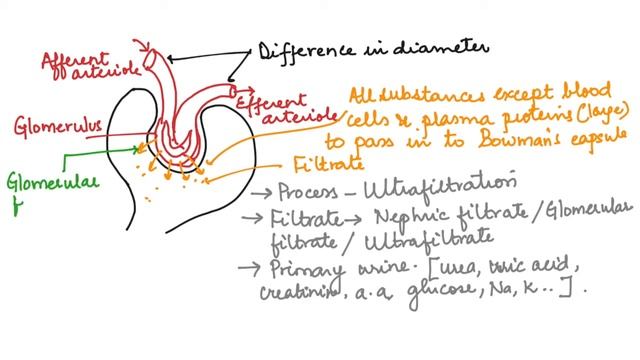 Afferent
arteriole
Difference in diameter
Efferent
arteriole
Glomerulus
Glomerular
f
All substances except blood
cells & plasma proteins (large)
to pass in to Bowman's capsule
Filtrate
→ Process - Ultrafiltration
→ Filtrate → Nephric filtrate / Glomerular
filtrate / Ultrafiltrate
→ Primary urine. [urea, uric acid,
creatinine, a.a, glucose, Na, K...].